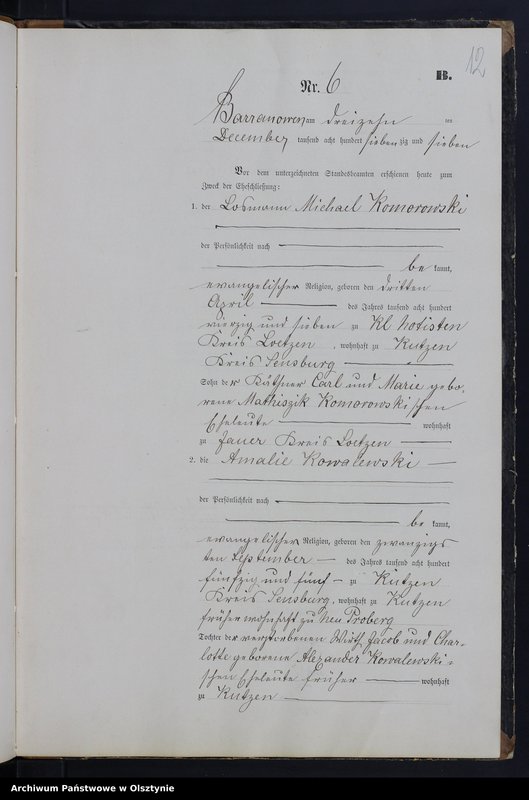 12
B.
Nr. 6
Barranowen am dreizehn ten
December tausend acht hundert sieben zig und sieben
Vor dem unterzeichneten Standesbeamten erschienen heute zum
Zweck der Eheschließung:
1. der Losmann Michael Komorowski
der Persönlichkeit nach
be kannt,
evangelischer Religion, geboren den dritten
April des Jahres tausend acht hundert
vierzig und sieben zu Kl Notisten
Kreis Loetzen, wohnhaft zu Kutzen
Kreis Sensburg
Sohn der Käthner Carl und Marie gebo-
rene Mathiszik Komorowski'schen
Eheleute wohnhaft
zu Jauer Kreis Loetzen
2. die Amalie Kowalewski
der Persönlichkeit nach
be kannt,
evangelischer Religion, geboren den zwanzigs
ten September des Jahres tausend acht hundert
fünfzig und fünf zu Kutzen
Kreis Sensburg, wohnhaft zu Kutzen
früher wohnhaft zu Neu Proberg
Tochter der verstorbenen Wirth Jacob und Char-
lotte geborene Alexander Kowalewski-
schen Eheleute früher wohnhaft
zu Kutzen
Archiwum Państwowe w Olsztynie